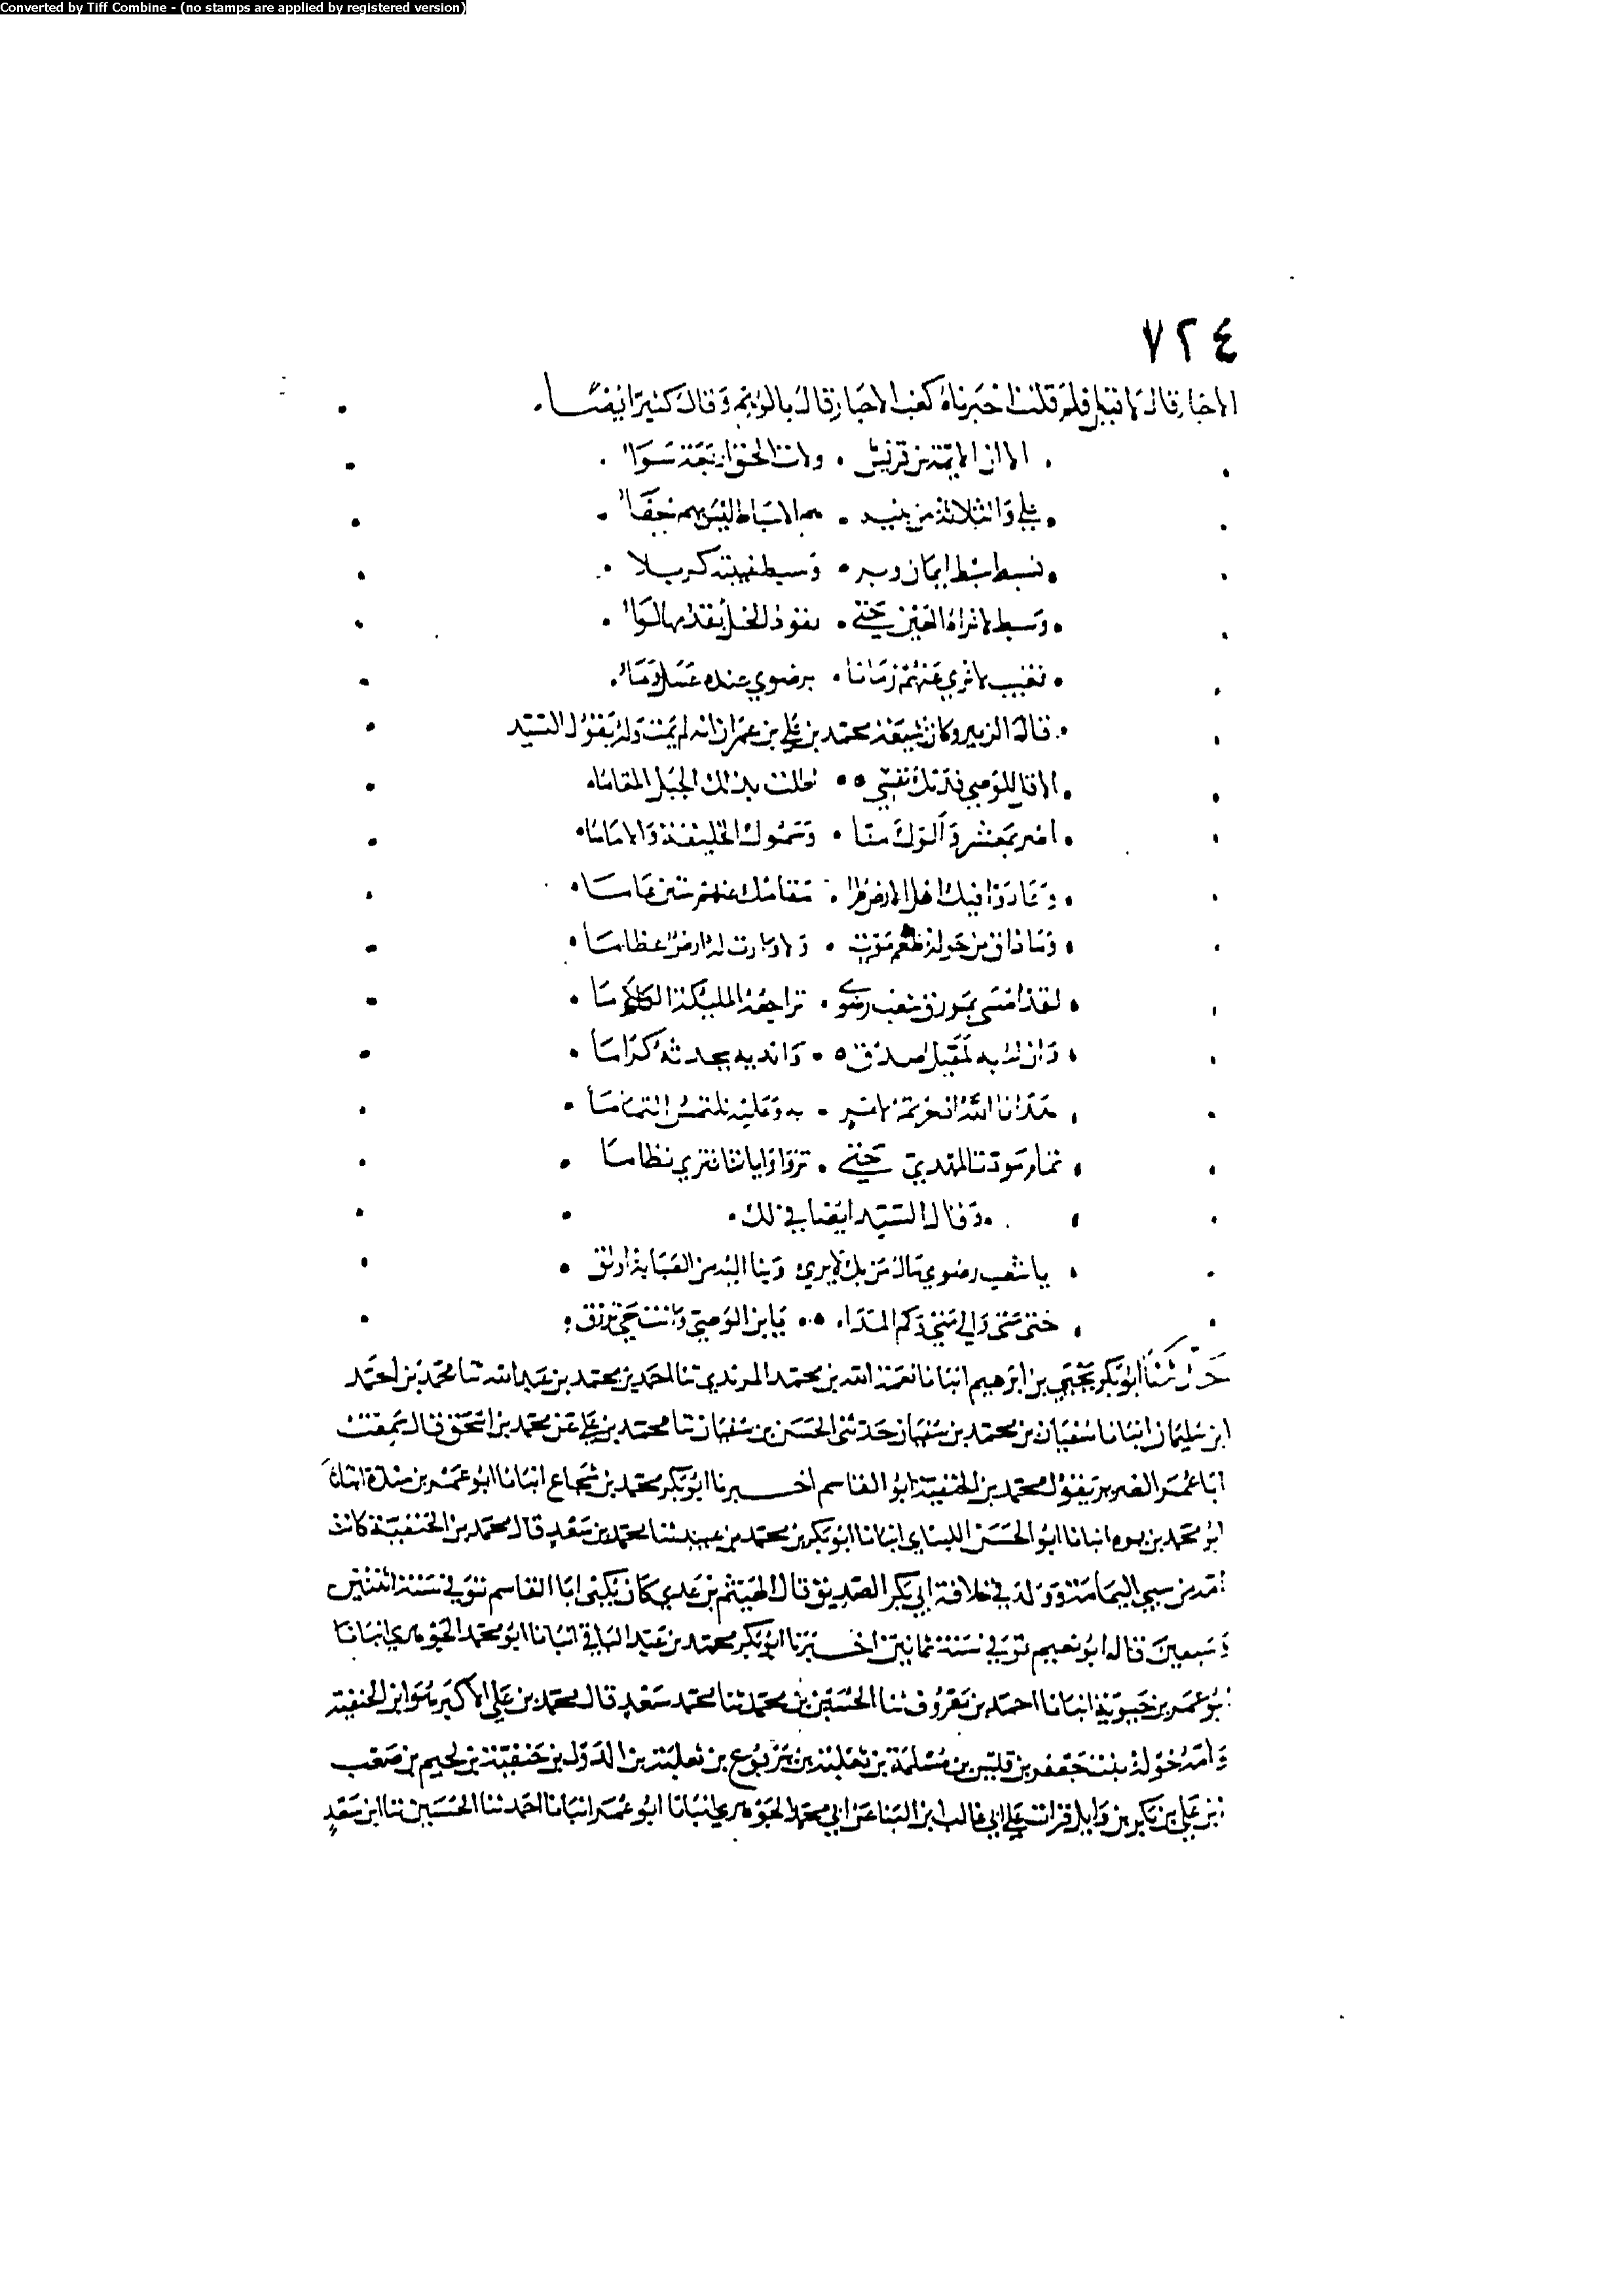 Converted by Tiff Combine - (no stamps are applied by registered version)
٧٢٤
الاخبار قال لا قيل فلم قلت اخبرناه كعب الاحبار قال بالوهم وقال كثير ايضا
الا ان الائمة من قريش ولاة الحق اربعة سواء
علي والثلاثة من بنيه هم الاسباط ليس بهم خفاء
فسبط سبط ايمان وبر وسبط غيبته كربلا
وسبط لا تراه العين حتى يقود الخيل يقدمها اللواء
تغيب لا يرى عنهم زمانا برضوي عنده عسل وماء
قال الزبير وكان شيعة محمد بن علي بن عمران انه لم يمت وله يقول السيد
الا قل للوصي فدتك نفسي اطلت بذلك الجبل المقاما
اضر بمعشر والوك منا وسموك الخليفة والاماما
وعادوا فيك اهل الارض طرا مقامك عنهم ستين عاما
وما ذاق بن خولة طعم موت ولا وارت له ارض عظاما
لقد امسى بمورق شعب رضوي تراجعه المليكة الكلاما
وان له به لمقيل صدق واندية يحدثه كراما
هدانا الله اذ حزتم لامر به وعليه نلتمس التماما
تمام مودة المهدي حتى تروا راياتنا تتري نظاما
وقال السيد ايضا في ذلك
يا شعب رضوي مال من بك لا يرى وبنا اليه من الصبابة اولق
حتى متى والى متى وكم المدا يا بن الوصي وانت حي ترزق
حدثنا ابو بكر يحيى بن ابرهيم انبانا نعمة الله بن محمد المرندي ثنا احمد بن محمد بن عبد الله ثنا محمد بن احمد
ابن سليمان انبانا سفيان بن محمد بن سفيان حدثني الحسن بن سفيان ثنا محمد بن علي عن محمد بن اسحق قال سمعت
ابا عمر الضرير يقول محمد بن الحنفية ابو القاسم اخبرنا ابو بكر محمد بن شجاع انبانا ابو عمرو بن مندة انبانا
ابو محمد بن يوه انبانا ابو الحسن اللبناي انبانا ابو بكر بن محمد بن عبيد ثنا محمد بن سعد قال محمد بن الحنفية كانت
امه من سبي اليمامة وولد في خلافة ابي بكر الصديق قال الهيثم بن عدي كان يكنى ابا القاسم توفي سنة اثنتين
وسبعين قال ابو نعيم توفي سنة ثمانين اخبرنا ابو بكر محمد بن عبد الباقي انبانا ابو محمد الجوهري انبانا
ابو عمر بن حيوية انبانا احمد بن معروف ثنا الحسين بن محمد ثنا محمد سعد قال محمد بن علي الاكبر هو ابن الحنفية
وامه خولة بنت جعفر بن قيس بن مسلمة بن ثعلبة بن يربوع بن ثعلبة بن الدول بن حنفية بن لجيم بن صعب
بن علي بن بكر بن وايل قرات علي ابي غالب ابن البنا عن ابي محمد الجوهري انبانا ابو عمر انبانا احمد ثنا الحسين ثنا ابن سعد